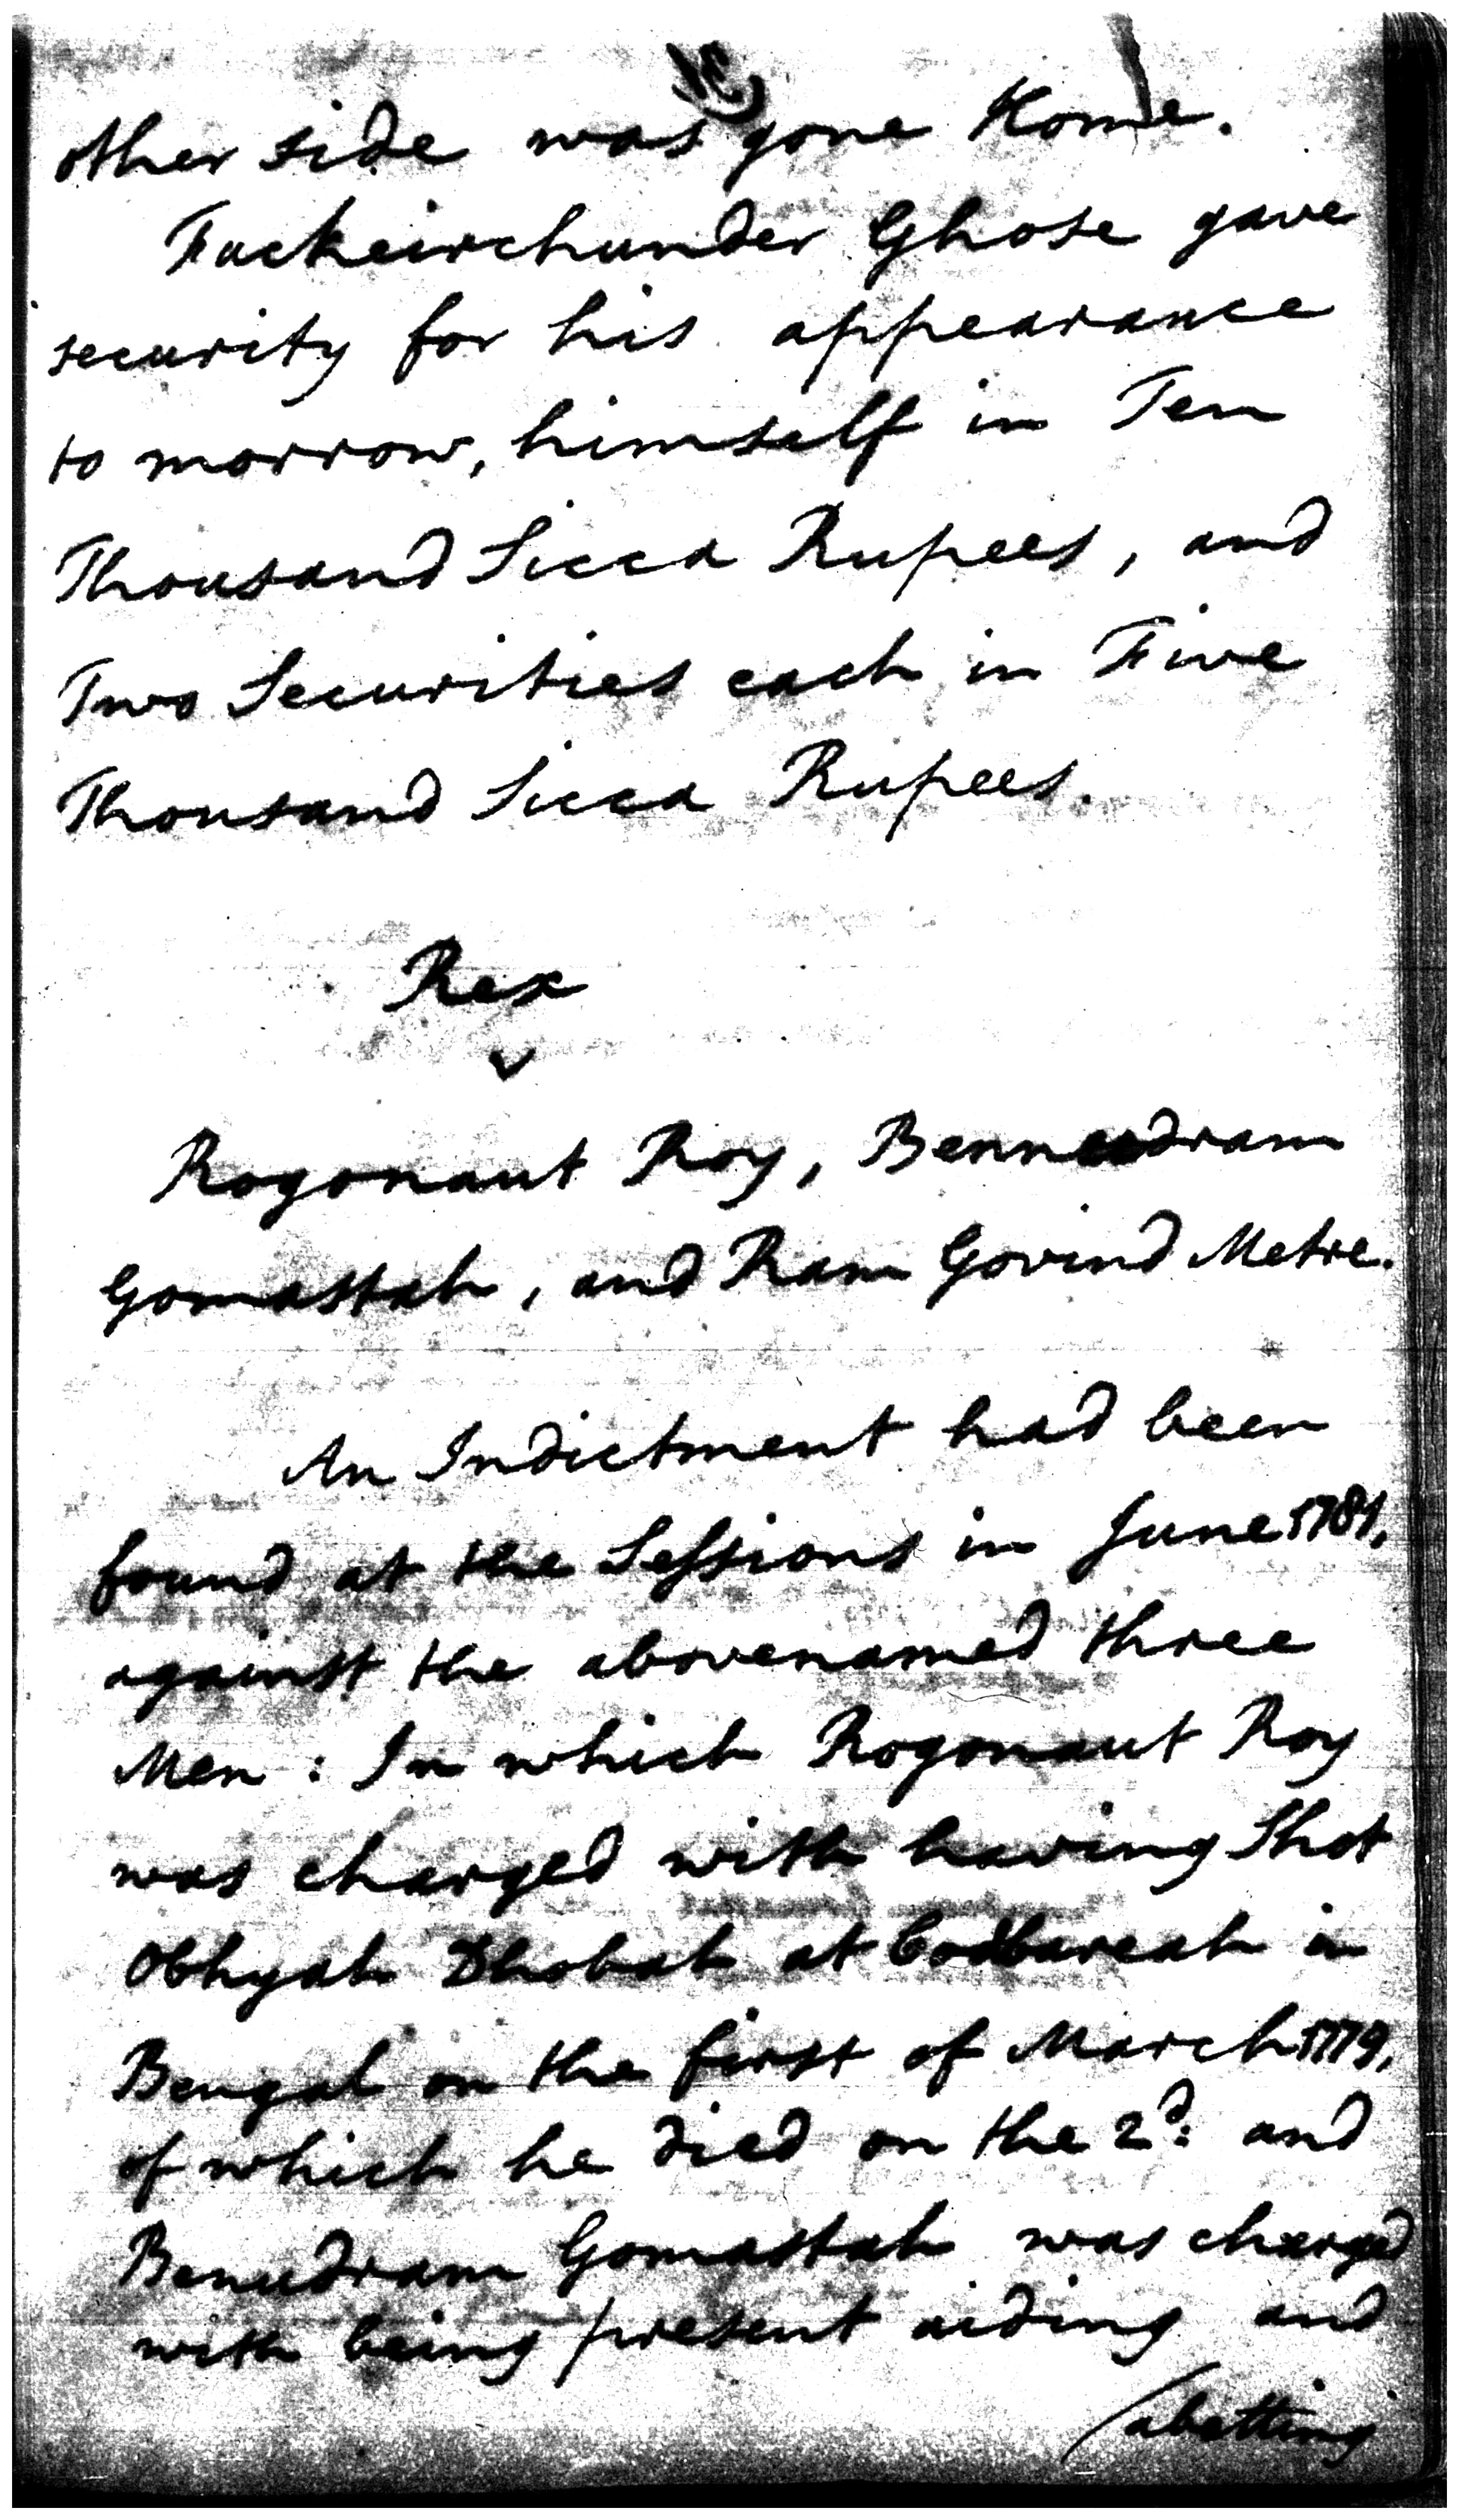 other side was gone Home.
Fuckeirchunder Ghose gave
security for his appearance
to morrow, himself in Ten
Thousand Sicca Rupees, and
Two Securities each in Five
Thousand Sicca Rupees.
Rex
v
Rogonaut Roy, Bennudram
Gomastah, and Ram Govind Metre.
An Indictment had been
found at the Sessions in June 1781,
against the abovenamed three
Men : In which Rogonaut Roy
was charged with having Shot
Obhyah Dhobah at in
Bengal on the first of March 1779,
of which he died on the 2d: and
Benudram Gomastah was charged
with being present aiding and
abetting